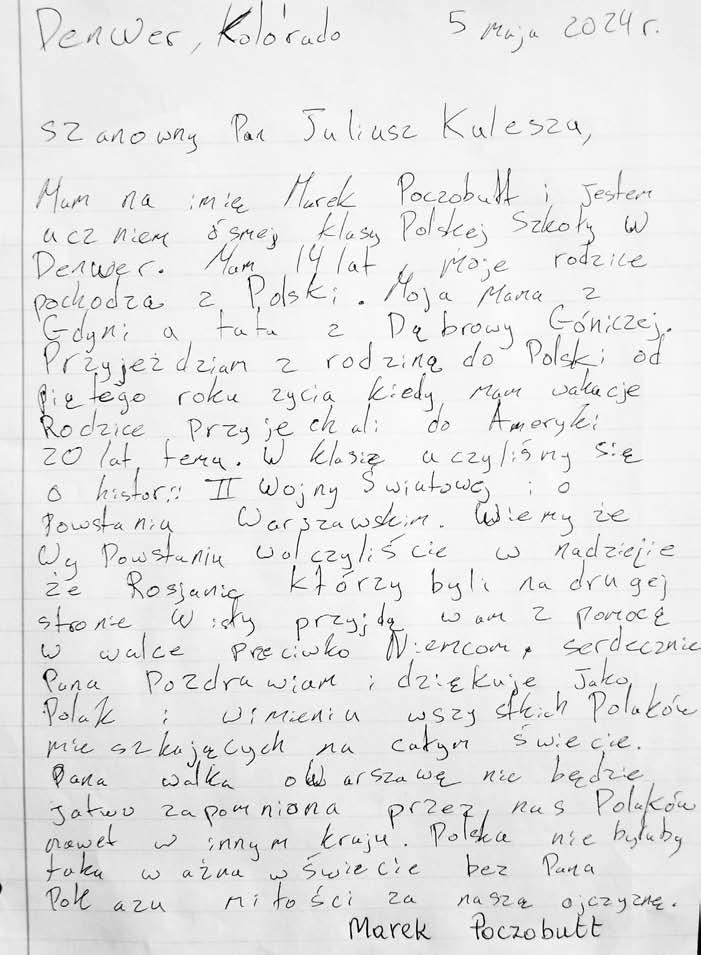 Denwer, Kolórado 5 maja 2024 r.
szanowny Pan Juliusz Kulesza,
Mam na imię Marek Poczobutt i jestem
uczniem ósmej klasy Polskej Szkoły w
Denwer. Mam 14 lat, Moje rodzice
pochodzą z Polski. Moja Mama z
Gdyni a tata z Dąbrowy Góniczej.
Przyjeżdziam z rodziną do Polski od
piętego roku zycia kiedy mam wakacje
Rodzice przyjechali do Ameryki
20 lat temu. W klasię uczyliśmy się
o historii II Wojny Światowej i o
Powstaniu Warszawskim. Wiemy że
Wy Powstaniu walczyliście w nadzieje
że Rosjanię którzy byli na drugej
stronie Wisły przyjdą wam z pomocę
w walce przeciwko Niemcom, serdecznie
Pana Pozdrawiam i dziękuje jako
Polak i wimieniu wszystkich Polaków
mieszkających na całym świecie.
Pana walka oWarszawę nie będzie
łatwo zapomniona przez nas Polaków
nawet w innym kraju. Polska nie byłaby
taka ważna wświecie bez Pana
Pokazu miłości za naszą ojczyznę.
Marek Poczobutt